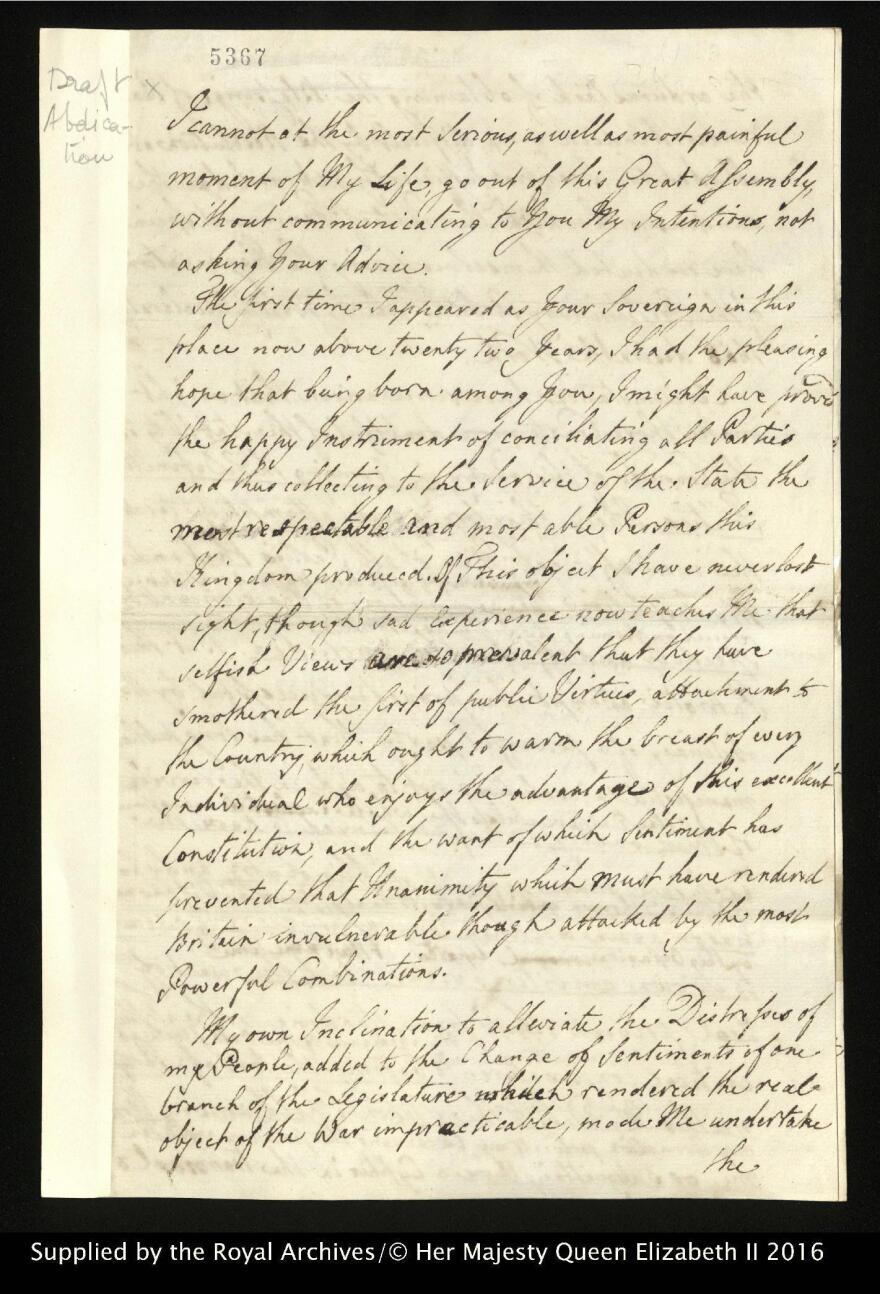 5367
Draft
Abdica-
tion
x
I cannot at the most serious, as well as most painful
moment of My Life, go out of this Great Assembly,
without communicating to You My Intentions, not
asking Your Advice.
The first time I appeared as Your Sovereign in this
place now above twenty two Years, I had the pleasing
hope that being born among You, I might have proved
the happy Instrument of conciliating all Parties
and thus collecting to the Service of the State the
most respectable and most able Persons this
Kingdom produced. Of This object I have never lost
sight, though sad Experience now teaches Me that
selfish Views are so prevalent that they have
smothered the first of public Virtues, attachment to
the Country, which ought to warm the breast of every
Individual who enjoys the advantages of this excellent
Constitution, and the want of which Sentiment has
prevented that Unanimity which must have rendered
Britain invulnerable though attacked by the most
Powerful Combinations.
My own Inclination to alleviate the Distresses of
my People, added to the Change of Sentiments of one
branch of the Legislature which rendered the real
object of the War impracticable, made Me undertake
the
Supplied by the Royal Archives/© Her Majesty Queen Elizabeth II 2016